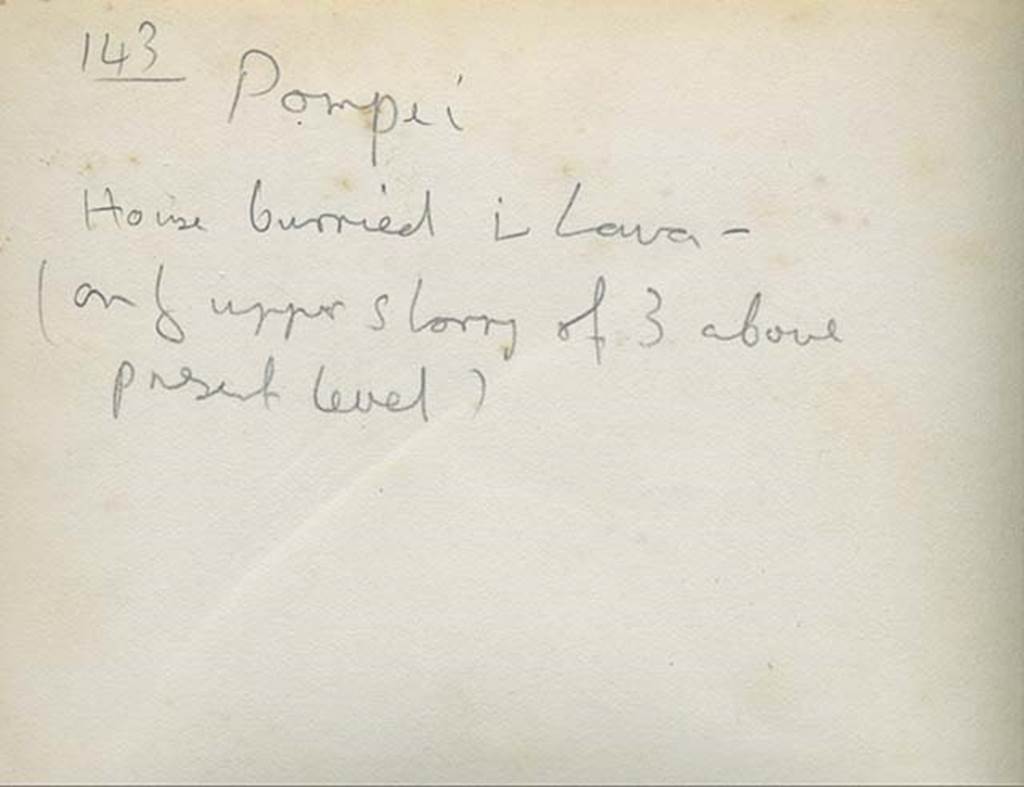 143
Pompei
House burried in Lava -
(only upper storry of 3 above
present level)